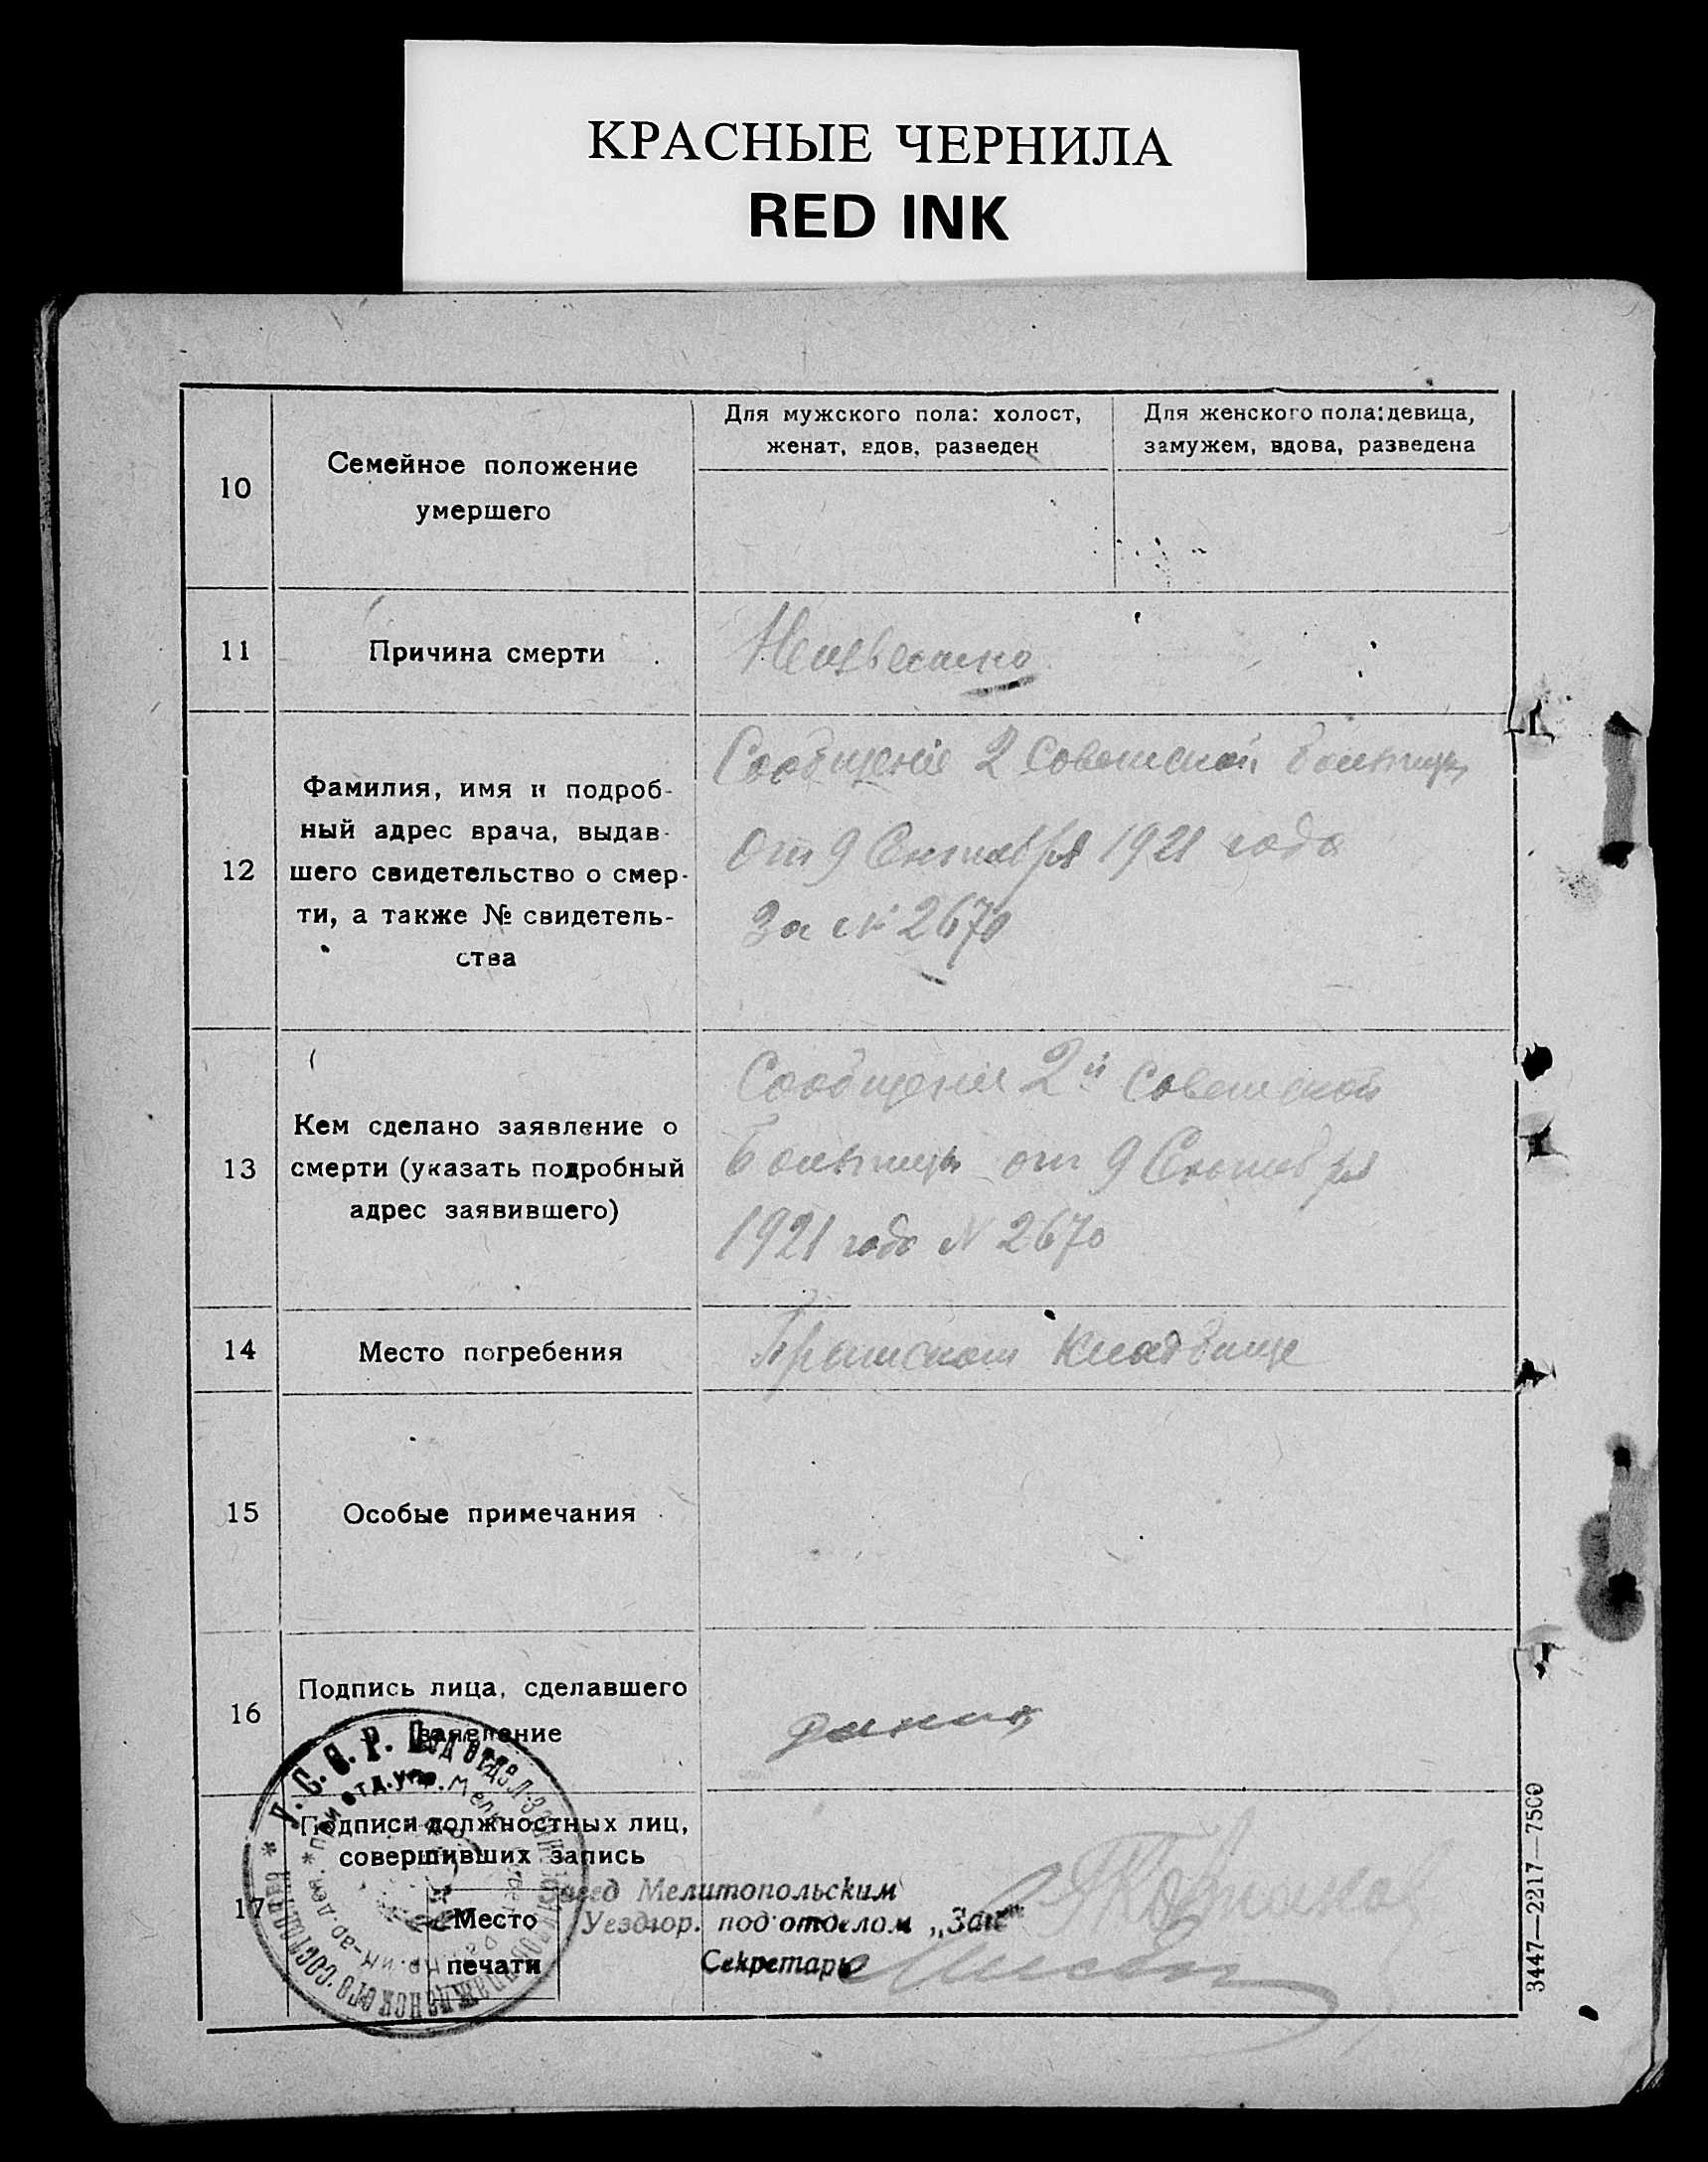 КРАСНЫЕ ЧЕРНИЛА
RED INK
10
Семейное положение
умершего
Для мужского пола: холост,
женат, вдов, разведен
Для женского пола: девица,
замужем, вдова, разведена
11
Причина смерти
Неизвестно
12
Фамилия, имя и подроб-
ный адрес врача, выдав-
шего свидетельство о смер-
ти, а также № свидетель-
ства
Сообщение 2 Советской больницы
от 9 Сентября 1921 года
За № 2670
13
Кем сделано заявление о
смерти (указать подробный
адрес заявившего)
Сообщение 2й Советской
больницы от 9 Сентября
1921 года № 2670
14
Место погребения
кладбище
15
Особые примечания
16
Подпись лица, сделавшего
заявление
17
Подписи должностных лиц,
совершивших запись
Место
печати
Завед Мелитопольским
Уездгор. подотделом „Заг“
Секретарь
У.С.С.Р. Подотдел
гражданского состояния
при Отд. Упр.
3447—2217—7500